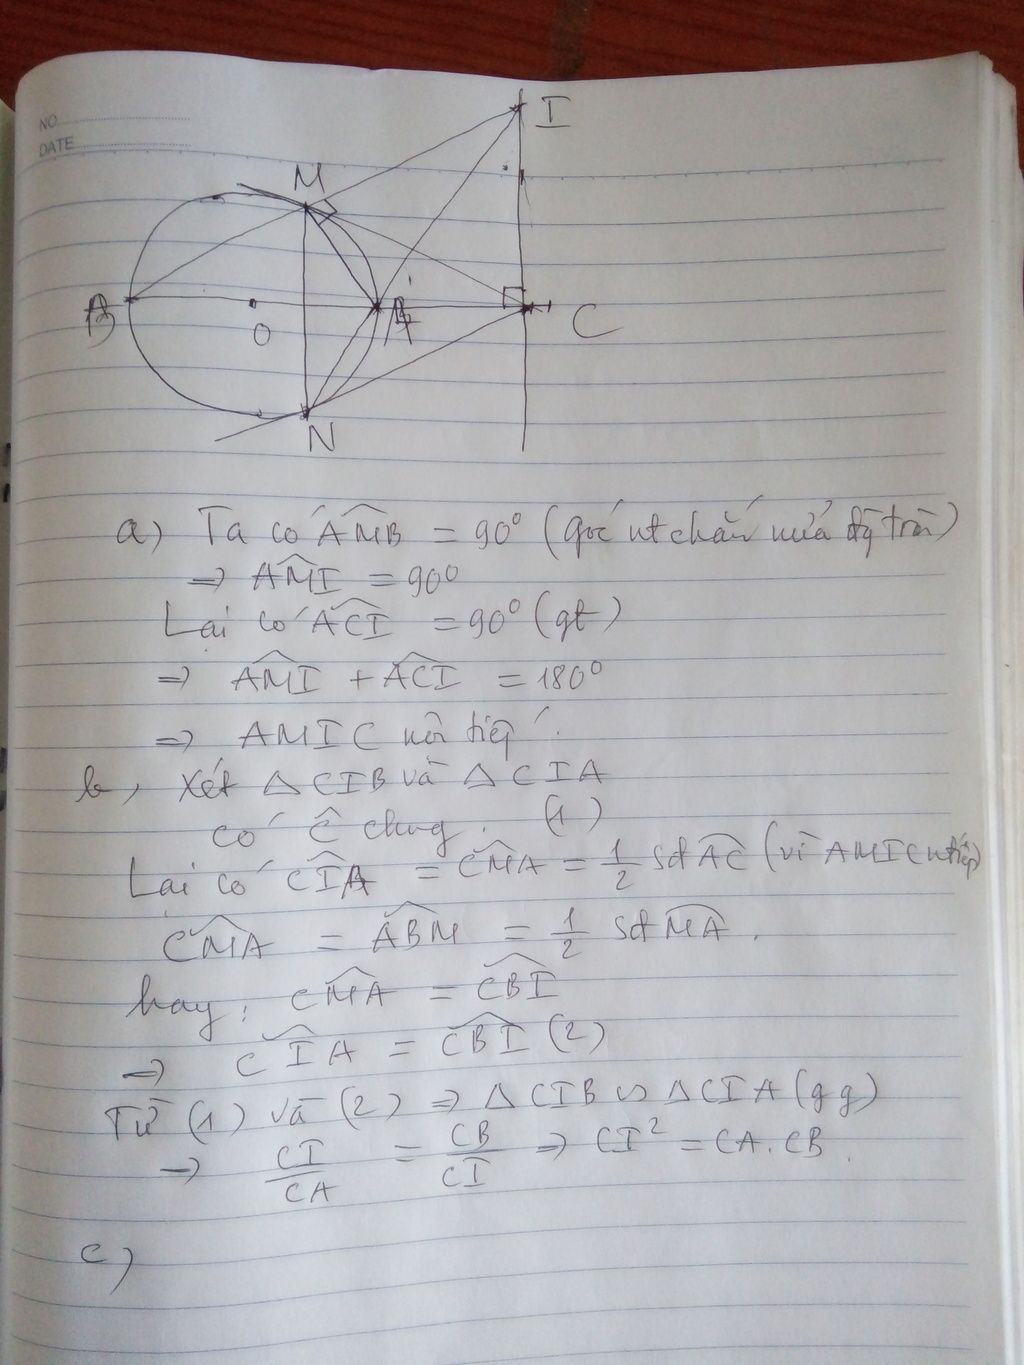 NO
DATE
I
M
B
O
A
C
N
a) Ta có AMB = 90° (góc nt chắn nửa đg tròn)
=> AMI = 90°
Lại có ACI = 90° (gt)
=> AMI + ACI = 180°
=> AMIC nội tiếp.
b, Xét Δ CIB và Δ CIA
có Ĉ chung. (1)
Lại có CIA = CMA = 1/2 sđ AC (vì AMIC ntiếp)
CMA = ABM = 1/2 sđ MA.
hay: CMA = CBI
=> CIA = CBI (2)
Từ (1) và (2) => Δ CIB ∽ Δ CIA (gg)
=> CI/CA = CB/CI => CI² = CA.CB.
c)